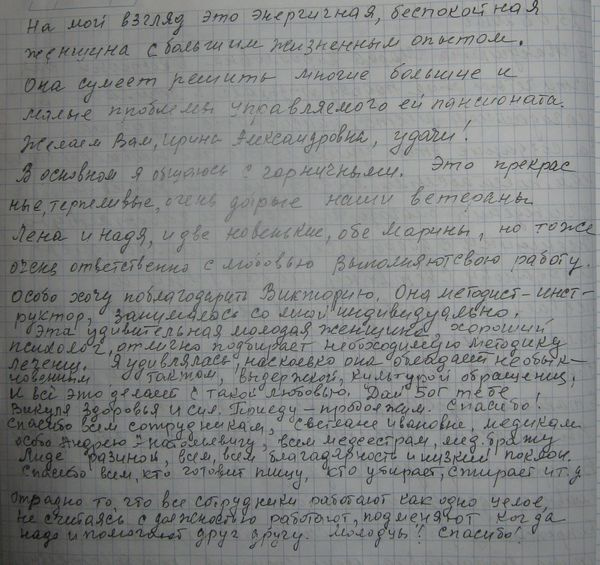 На мой взгляд это энергичная, беспокойная
женщина с большим жизненным опытом.
Она сумеет решить многие большие и
малые проблемы управляемого ей пансионата.
Желаем Вам, Ирина Александровна, удачи!
В основном я общаюсь с горничными. Это прекрас
ные, терпеливые, очень добрые наши ветераны
Лена и Надя, и две новенькие, обе Марины, но тоже
очень ответственно с любовью выполняют свою работу.
Особо хочу поблагодарить Викторию. Она методист-инст-
руктор, занималась со мной индивидуально.
Эта удивительная молодая женщина, хороший
психолог, отлично подбирает необходимую методику
лечения. Я удивлялась, насколько она обладает необык-
новенным тактом, выдержкой, культурой обращения,
И всё это делает с такой любовью. Дай Бог тебе,
Викуля здоровья и сил. Приеду - продолжим. Спасибо!
Спасибо всем сотрудникам, Светлане Ивановне, медикам
особо Андрею Анатольевичу, всем медсестрам, мед. брату
Лиде Разиной, всем, всем благодарность и низкий поклон.
Спасибо всем, кто готовит пищу, кто убирает, стирает и т.д.
Отрадно то, что все сотрудники работают как одно целое,
не считаясь с должностью работают, подменяют когда
надо и помогают друг другу. Молодцы! Спасибо!